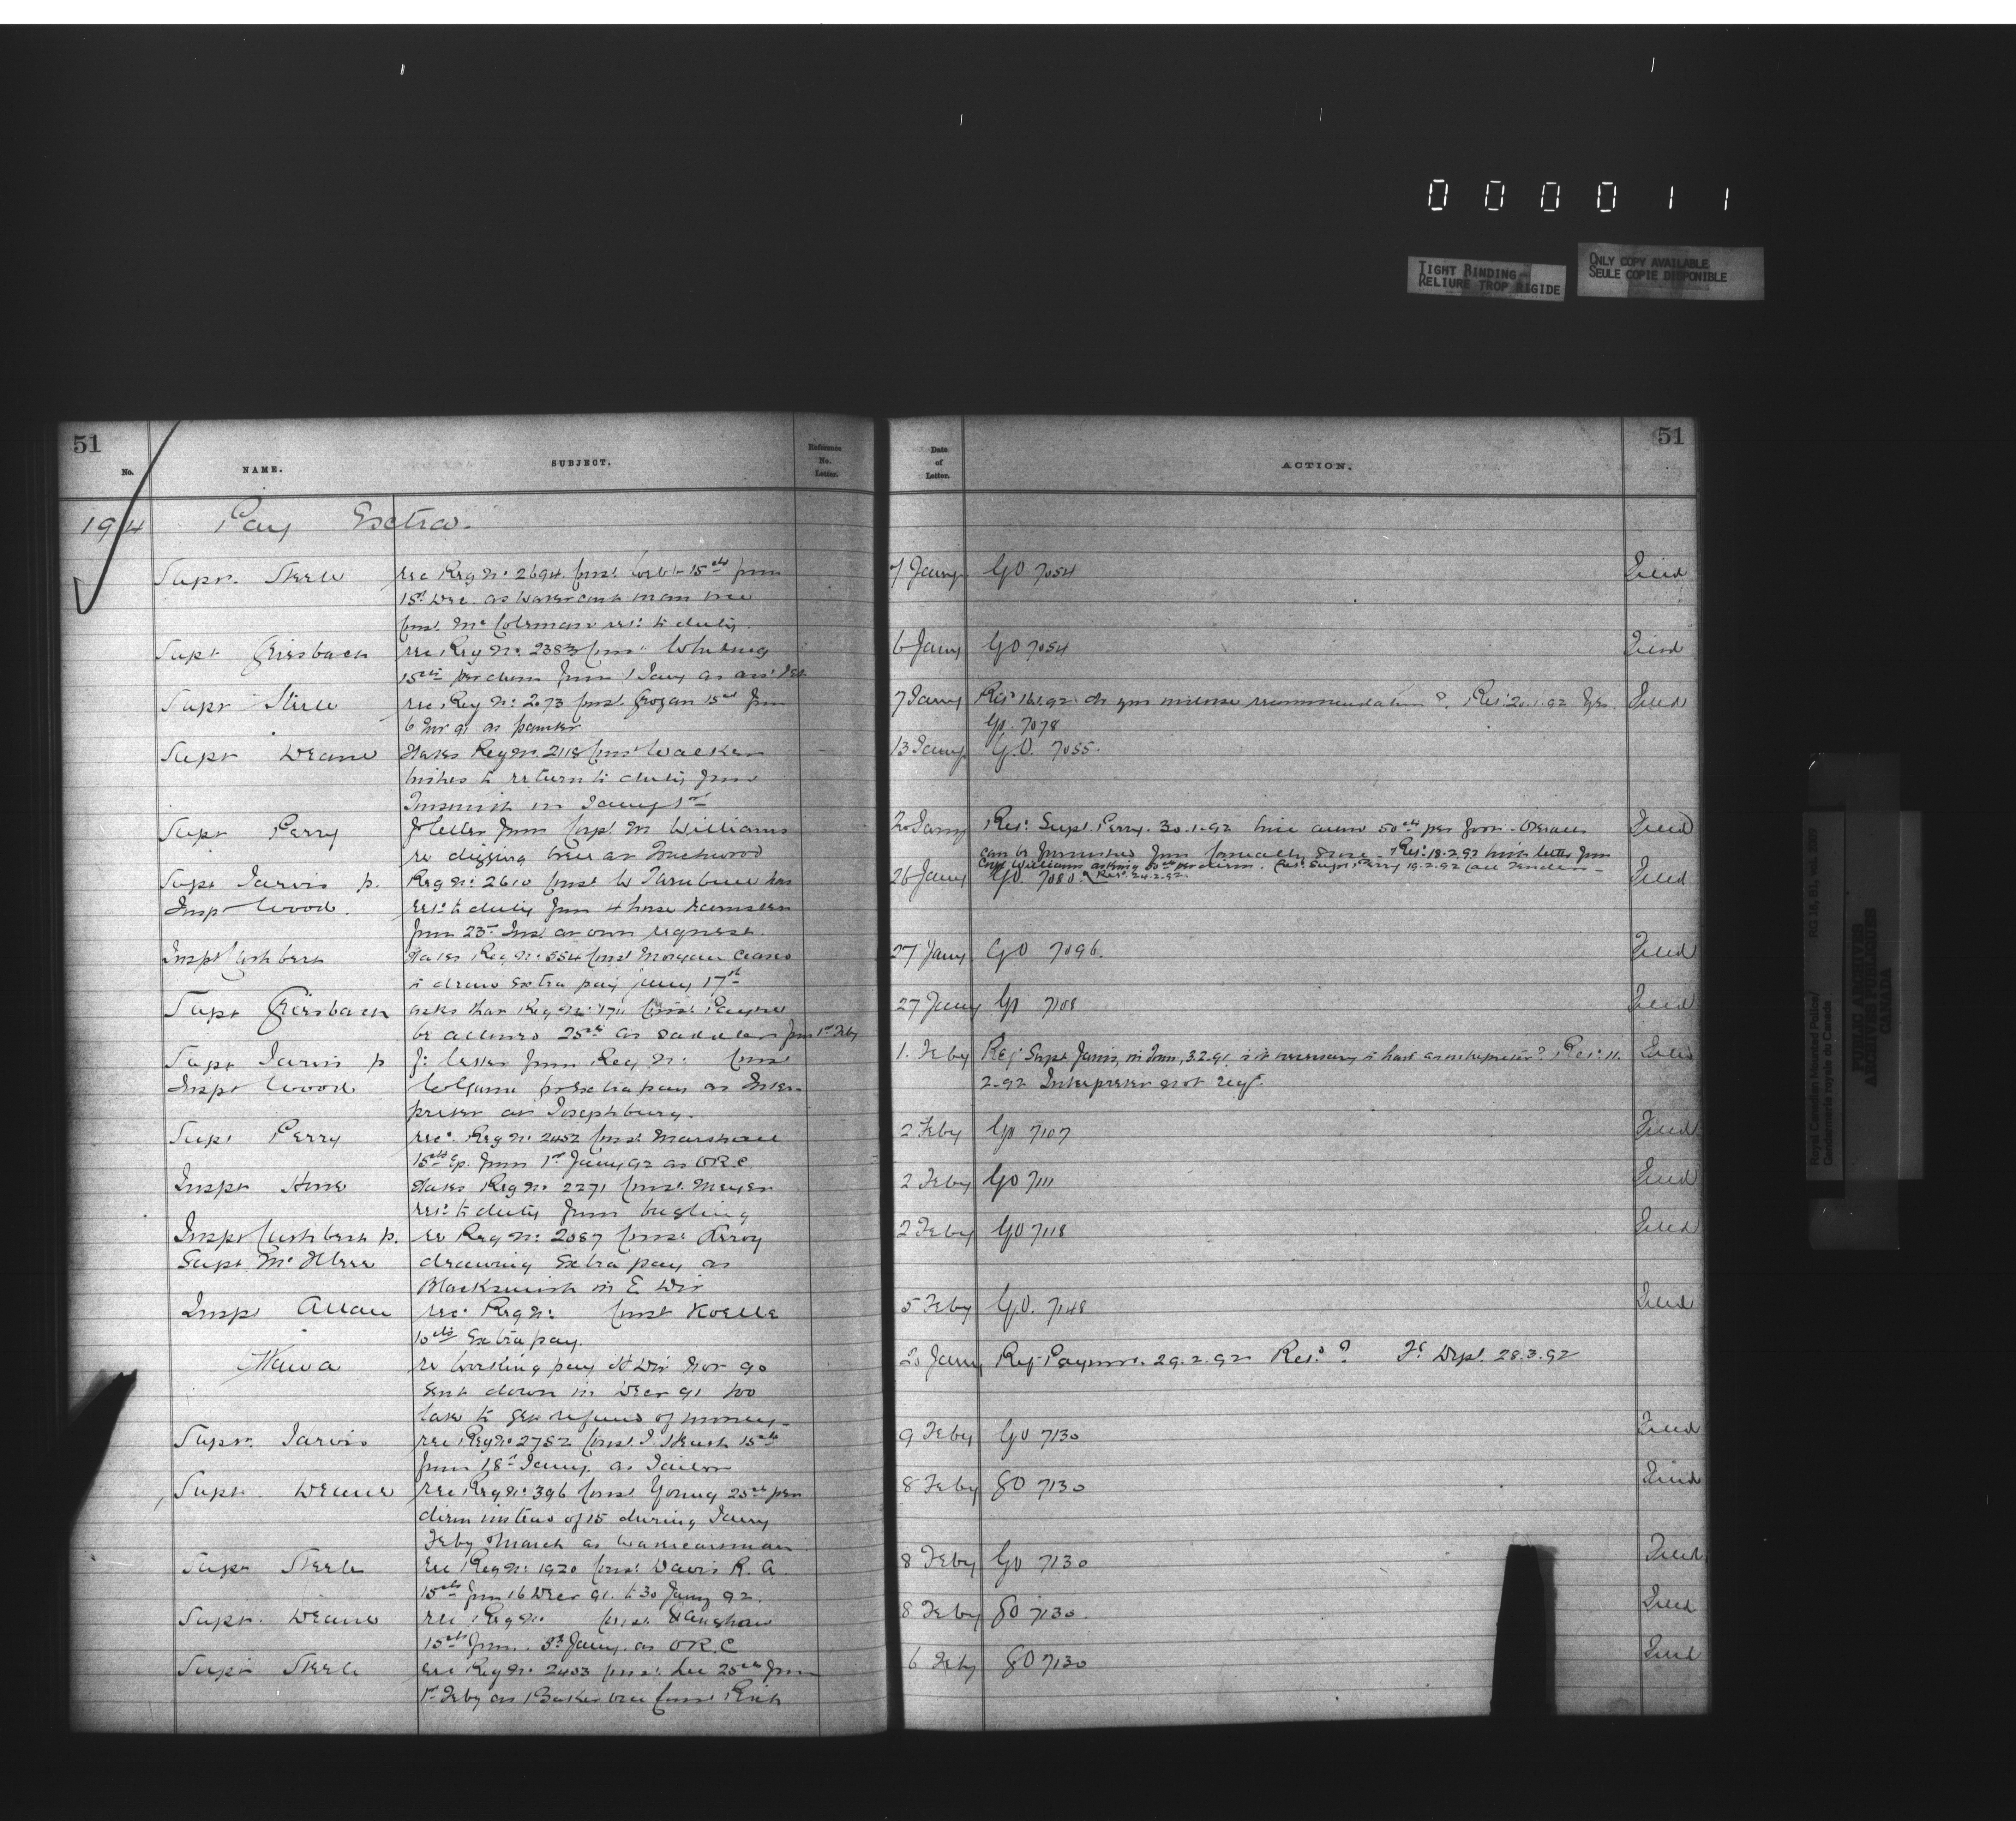 0 0 0 0 1 1
TIGHT BINDING
RELIURE TROP RIGIDE
ONLY COPY AVAILABLE
SEULE COPIE DISPONIBLE
51
No.
NAME.
SUBJECT.
Reference
No.
Letter.
194 Pay Extra.
Supt. Steele rec Reg No. 2694 Const. 15cts from
15th Dec. as water cart man vice
Const. Mc Coleman ret. to duty.
Supt Griesbach rec Reg No. 2383 Const. Whiting
15cts per diem from 1 Jany as asst
Supt Steele rec Reg No. 2073 Const. Grogan 15cts from
6 Nov 91 as painter
Supt Deane states Reg No. 2118 Const Walker
wishes to return to duty from
Tinsmith in Jany 1st
Supt Perry f letter from Corpl. M Williams
re digging well at
Supt Jarvis p. Reg No. 2610 Const. W Turnbull has
Inspt Wood. ret. to duty from 4 horse teamster
from 23rd Inst at own request.
Inspt Cuthbert states Reg No. 554 Const Morgan ceased
to draw extra pay Jany 17th
Supt Griesbach asks that Reg No. Const Payne
be allowed 25cts as saddler from 1st Feby
Supt Jarvis p f. letter from Reg No. Const
Inspt Wood for extra pay as Inter
preter at Josephburg.
Supt Perry rec. Reg No 2452 Const. Marshall
15cts from 1st Jany 92 as ORC
Inspt Howe states Reg No. 2271 Const. Meyer
ret. to duty from bugling
Inspt Cuthbert p. re Reg No. 2087 Const. Leroy
Supt McIllree drawing Extra pay as
Blacksmith in E Div
Inspt Allan rec. Reg No. Const Koelle
10cts Extra pay.
Ottawa re working pay Div Nov 90
sent down in Decr 91 too
late to get refund of money.
Supt. Jarvis rec Reg No 2752 Const. 15cts
from 18th Jany. as Tailor
Supt. Deane rec Reg No. 396 Const. Young 25cts per
diem instead of 15 during Jany
Feby March as watercartman
Supt Steele rec Reg No. 1920 Const. Davis R. A.
15cts from 16 Decr 91. to 30 Jany 92.
Supt. Deane rec Reg No Const.
15cts from 3rd Jany. as ORC
Supt Steele rec Reg No. 2403 Const. Lee 25cts from
1st Feby as Baker vice Const
Date
of
Letter.
ACTION.
51
7 Jany GO 7054 Filed
6 Jany GO 7054 Filed
7 Jany Ret. 16.1.92 do you recommendation? Ret. 20.1.92 Yes. Filed
GO. 7078
13 Jany G.O. 7055.
20 Jany Ret. Supt. Perry. 30.1.92 will allow 50cts per foot. Filed
can be furnished from locally Ret. 18.2.92 with letter from
Corpl Williams asking per diem. Ret. Supt Perry 19.2.92 call Tenders
26 Jany GO. 7080. Ret. 24.2.92. Filed
27 Jany GO 7096. Filed
27 Jany GO 7108 Filed
1. Feby Ref Supt Jarvis, 3.2.91 is it necessary to have an interpreter? Ret. 11. Filed
2.92 Interpreter not reqd.
2 Feby GO 7107 Filed
2 Feby GO 7111 Filed
2 Feby GO 7118 Filed
5 Feby G.O. 7148 Filed
20 Jany Ref Paymr. 29.2.92 Ret.d? Fd Dept. 28.3.92
9 Feby GO 7130 Filed
8 Feby GO 7130 Filed
8 Feby GO 7130 Filed
8 Feby GO 7130. Filed
6 Feby GO 7130 Filed
Royal Canadian Mounted Police/
Gendarmerie royale du Canada
PUBLIC ARCHIVES
ARCHIVES PUBLIQUES
CANADA